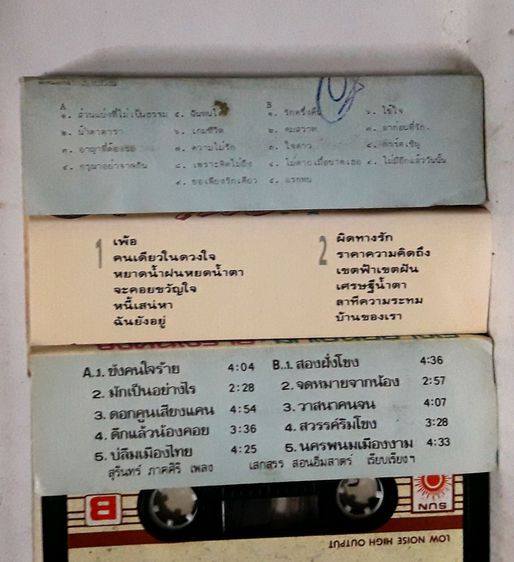 A
B
๑. ส่วนแบ่งที่ไม่เป็นธรรม
๒. น้ำตาดารา
๓. อาญาที่ต้องเธอ
๔. กรุณาอย่าจาพลัน
๕. ฉันทนได้
๖. เกมชีวิต
๗. ความไม่รัก
๘. เพราะคิดไม่ถึง
๙. ขอเพียงรักเดียว
๑. รักครึ่งคืน
๒. คมสวาท
๓. ใจดาว
๔. ไม่ตายเมื่อขาดเธอ
๕. แรกพบ
๖. ใช้ใจ
๗. ลาก่อนที่รัก
๘. ไม่มีอีกแล้ววันนั้น
1
เพ้อ
คนเดียวในดวงใจ
หยาดน้ำฝนหยดน้ำตา
จะคอยขวัญใจ
หนี้เสน่หา
ฉันยังอยู่
2
ผิดทางรัก
ราคาความคิดถึง
เขตฟ้าเขตฝัน
เศรษฐีน้ำตา
ลาทีความระทม
บ้านของเรา
A.1. ขังคนใจร้าย 4:04
2. มักเป็นอย่างไร 2:28
3. ดอกคูนเสียงแคน 4:54
4. ดึกแล้วน้องคอย 3:36
5. ปลื้มเมืองไทย 4:25
B.1. สองฝั่งโขง 4:36
2. จดหมายจากน้อง 2:57
3. วาสนาคนจน 4:07
4. สวรรค์ริมโขง 3:28
5. นครพนมเมืองงาม 4:33
สุรินทร์ ภาคศิริ เพลง เสกสรร สอนอิมสาตร์ เรียบเรียงฯ
B
SUN
LOW NOISE HIGH OUTPUT